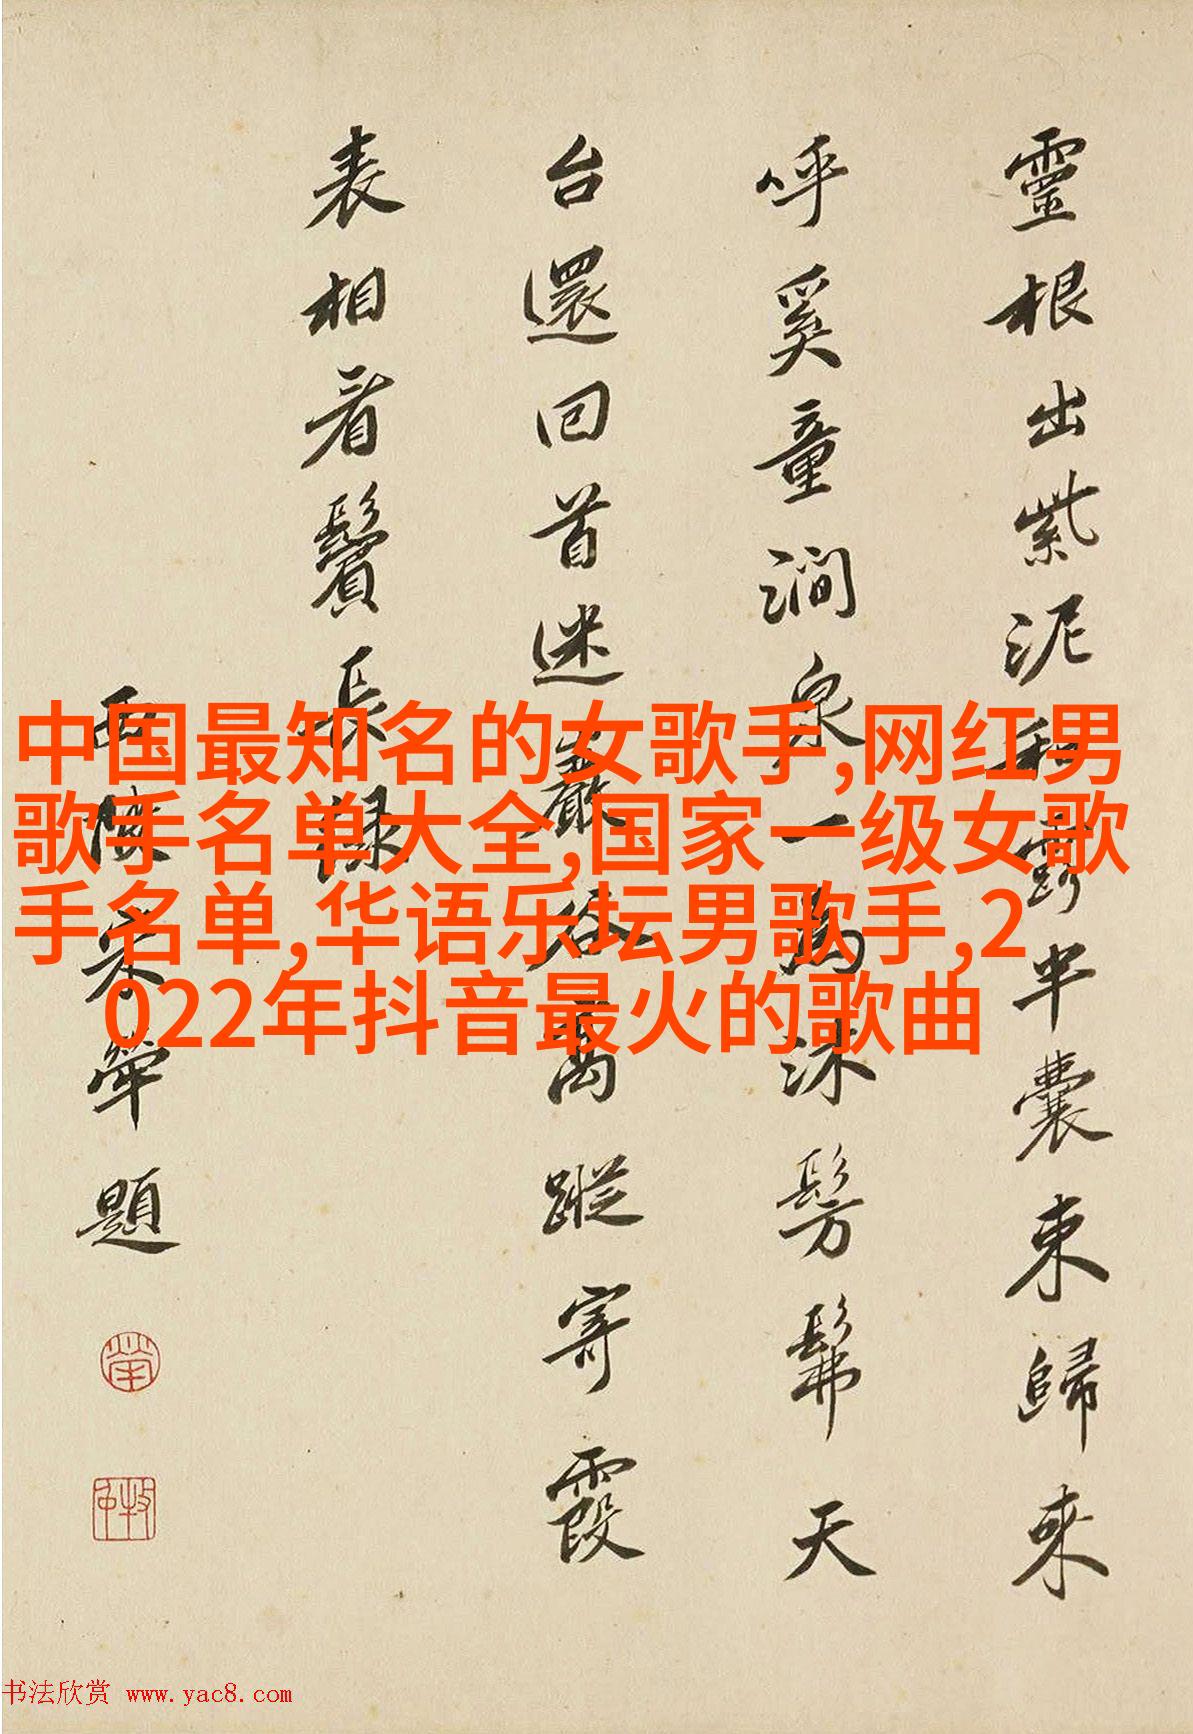 靈根出紫泥和露半囊束歸来
呼奚童澗泉一為沐髣髴天
台還回首迷巖谷高蹤寄霞
表相看鬢長綠
西陂宋犖題
犖
牧仲
中国最知名的女歌手,网红男
歌手名单大全,国家一级女歌
手名单,华语乐坛男歌手,2
022年抖音最火的歌曲
书法欣赏 www.yac8.com